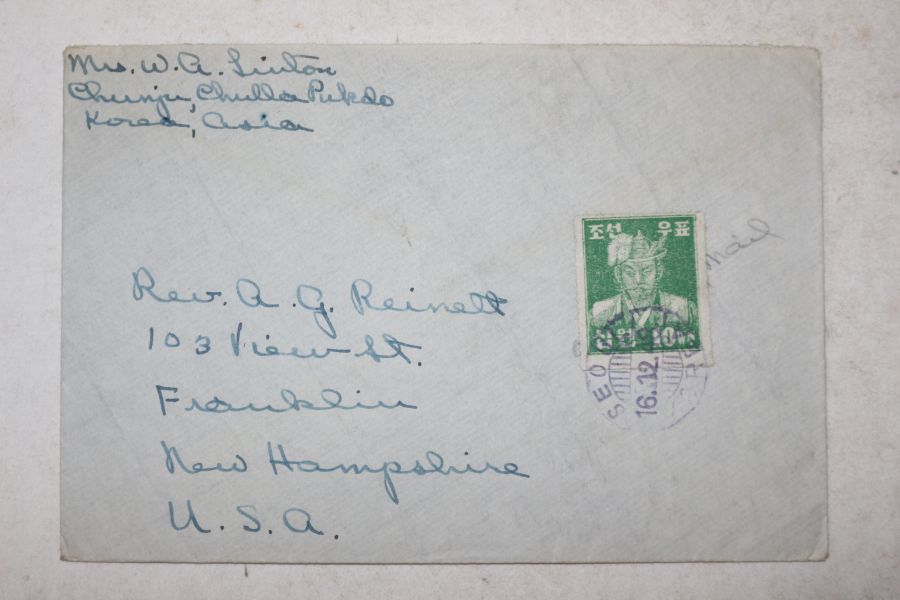 Mrs. W. A. Linton
Chunju, Chulla Pukdo
Korea, Asia
조선 우표
20
Mail
SEOUL
16.12
Rev. A. G. Reinett
103 View St.
Franklin
New Hampshire
U. S. A.